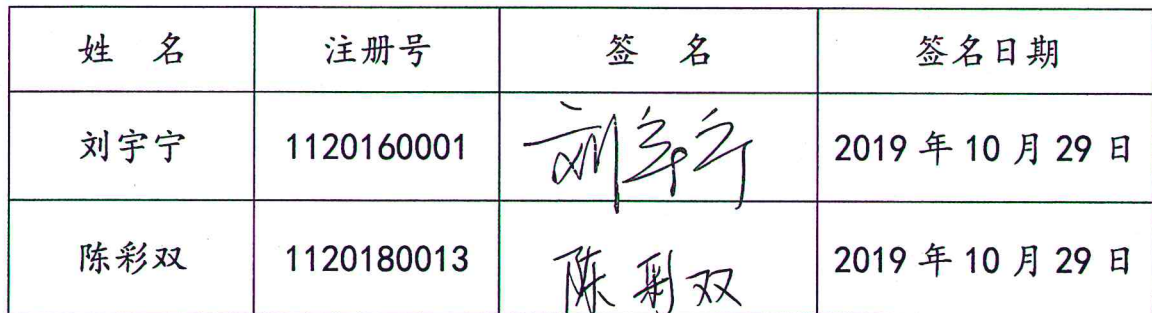 姓 名 注册号 签 名 签名日期
刘宇宁 1120160001 刘宇宁 2019年10月29日
陈彩双 1120180013 陈彩双 2019年10月29日